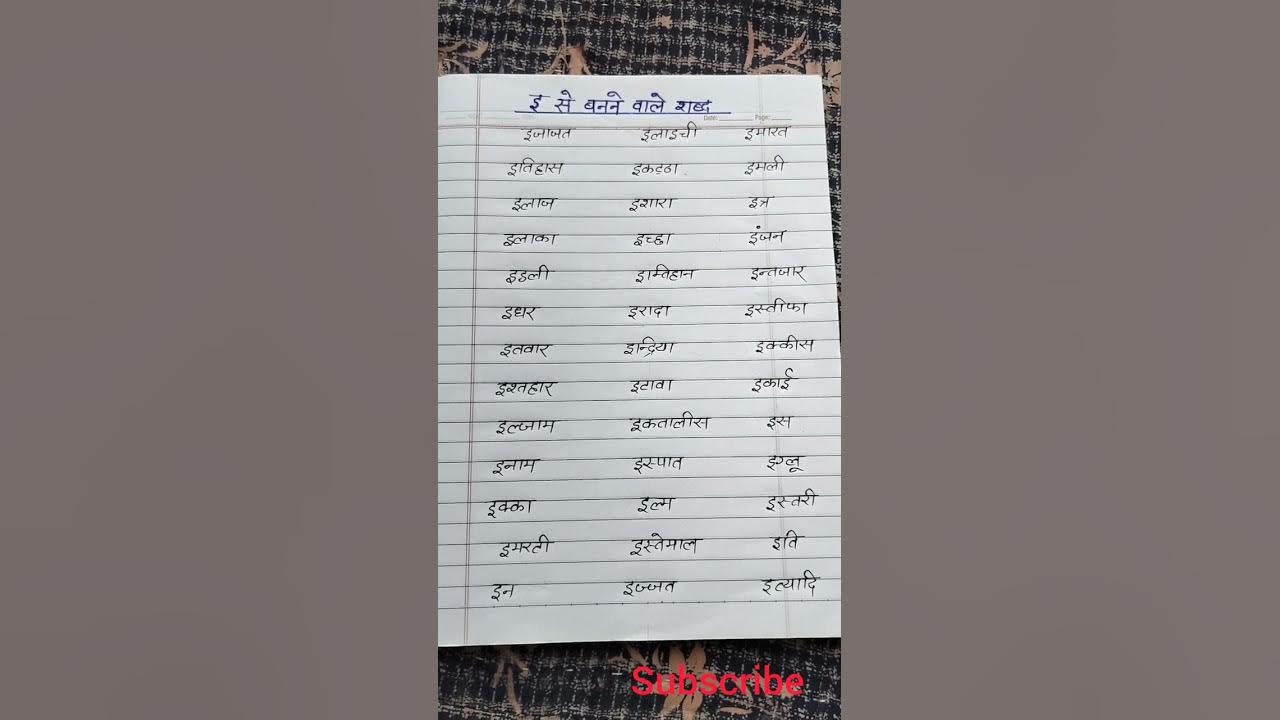 इ से बनने वाले शब्द
Date: Page:
इजाजत इलाइची इमारत
इतिहास इकट्ठा इमली
इलाज इशारा इत्र
इलाका इच्छा इंजन
इडली इम्तिहान इन्तजार
इधर इरादा इस्तीफा
इतवार इन्द्रिया इक्कीस
इश्तहार इटावा इकाई
इल्जाम इकतालीस इस
इनाम इस्पात इग्लू
इक्का इल्म इस्तरी
इमरती इस्तेमाल इति
इन इज्जत इत्यादि
Subscribe